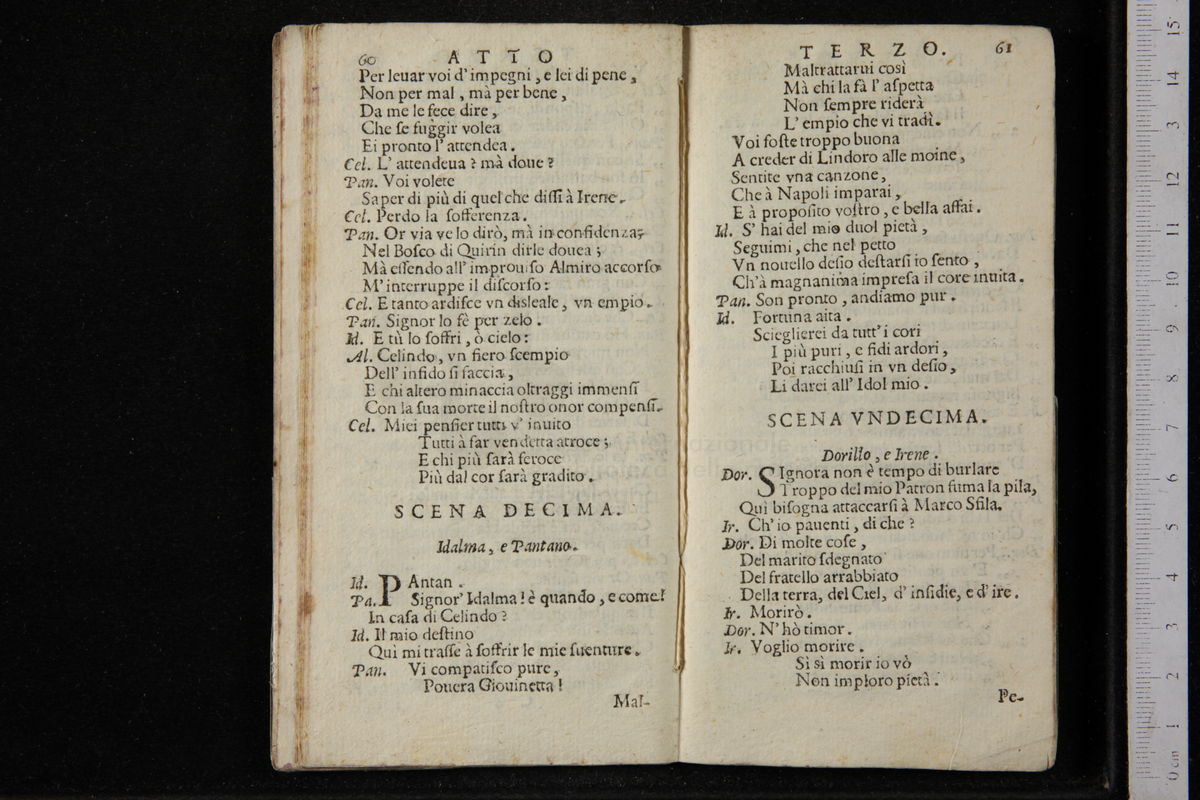 60 ATTO
Per leuar voi d' impegni, e lei di pene,
Non per mal, mà per bene,
Da me le fece dire,
Che ſe fuggir volea
Ei pronto l' attendea.
Cel. L' attendeua? mà doue?
Pan. Voi volete
Saper di più di quel che diſſi à Irene.
Cel. Perdo la ſofferenza.
Pan. Or via ve lo dirò, mà in confidenza;
Nel Boſco di Quirin dirle douea;
Mà eſſendo all' improuiſo Almiro accorſo
M' interruppe il diſcorſo:
Cel. E tanto ardiſce vn disleale, vn empio.
Pan. Signor lo fè per zelo.
Id. E tù lo ſoffri, ò cielo:
Al. Celindo, vn fiero ſcempio
Dell' infido ſi faccia,
E chi altero minaccia oltraggi immenſi
Con la ſua morte il noſtro onor compenſi.
Cel. Miei penſier tutti v' inuito
Tutti à far vendetta atroce;
E chi più ſarà feroce
Più dal cor ſarà gradito.
SCENA DECIMA.
Idalma, e Pantano.
Id. PAntan.
Pa. Signor' Idalma! è quando, e come!
In caſa di Celindo?
Id. Il mio deſtino
Quì mi traſſe à ſoffrir le mie ſuenture.
Pan. Vi compatiſco pure,
Pouera Giouinetta!
Mal-
TERZO. 61
Maltrattarui così
Mà chi la fà l' aſpetta
Non ſempre riderà
L' empio che vi tradì.
Voi foſte troppo buona
A creder di Lindoro alle moine,
Sentite vna canzone,
Che à Napoli imparai,
E à propoſito voſtro, e bella aſſai.
Id. S' hai del mio duol pietà,
Seguimi, che nel petto
Vn nouello deſio deſtarſi io ſento,
Ch'à magnanima impreſa il core inuita.
Pan. Son pronto, andiamo pur.
Id. Fortuna aita.
Scieglierei da tutt' i cori
I più puri, e fidi ardori,
Poi racchiuſi in vn deſio,
Li darei all' Idol mio.
SCENA VNDECIMA.
Dorillo, e Irene.
Dor. SIgnora non è tempo di burlare
Troppo del mio Patron fuma la pila,
Quì biſogna attaccarſi à Marco Sfila.
Ir. Ch' io pauenti, di che?
Dor. Di molte coſe,
Del marito ſdegnato
Del fratello arrabbiato
Della terra, del Ciel, d' inſidie, e d' ire.
Ir. Morirò.
Dor. N' hò timor.
Ir. Voglio morire.
Sì sì morir io vò
Non imploro pietà.
Pe-
0 cm 1 2 3 4 5 6 7 8 9 10 11 12 13 14 15